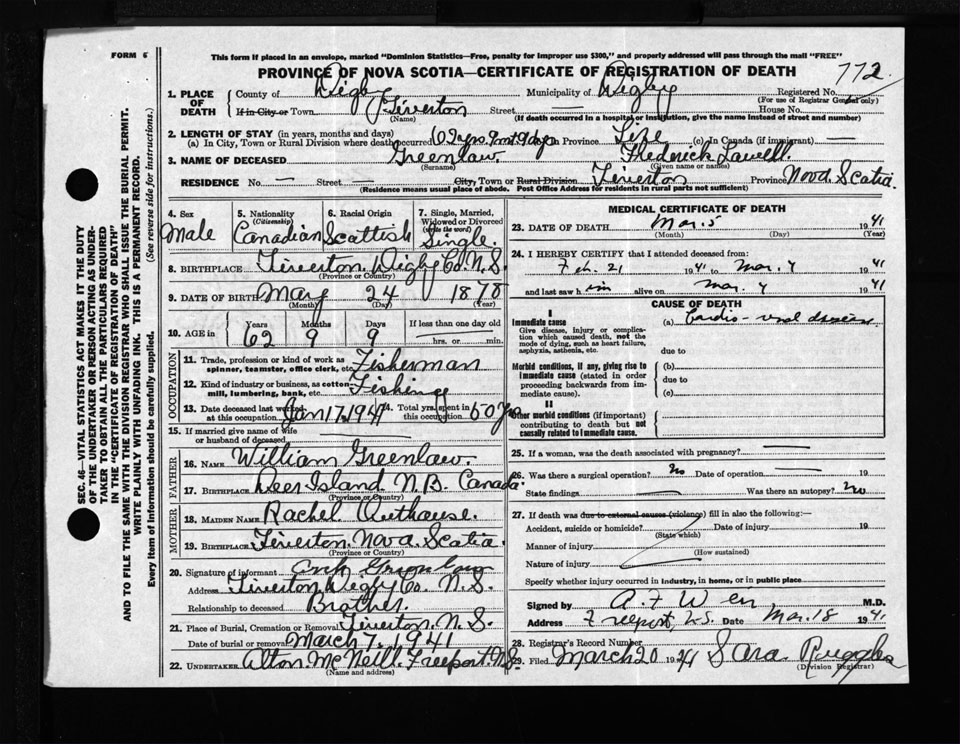 FORM 6
This form if placed in an envelope, marked "Dominion Statistics—Free, penalty for improper use $300," and properly addressed will pass through the mail "FREE"
PROVINCE OF NOVA SCOTIA—CERTIFICATE OF REGISTRATION OF DEATH
772
1. PLACE OF DEATH
County of Digby Municipality of Digby Registered No.
(For use of Registrar General only)
If in City or Town Tiverton Street — House No.
(Name) (If death occurred in a hospital or institution, give the name instead of street and number)
2. LENGTH OF STAY (in years, months and days)
(a) In City, Town or Rural Division where death occurred 62 yrs 9 mt 9 dys In Province Life (c) In Canada (if immigrant) —
3. NAME OF DECEASED Greenlaw Frederick Lawell.
(Surname) (Given name or names)
RESIDENCE No. — Street — City, Town or Rural Division Tiverton Province Nova Scotia.
(Residence means usual place of abode. Post Office Address for residents in rural parts not sufficient)
4. Sex
Male
5. Nationality (Citizenship)
Canadian
6. Racial Origin
Scottish
7. Single, Married, Widowed or Divorced (write the word)
Single.
8. BIRTHPLACE Tiverton Digby Co. N.S.
(Province or Country)
9. DATE OF BIRTH May 24 1878
(Month) (Day) (Year)
10. AGE in
Years Months Days If less than one day old
62 9 9 hrs. or min.
OCCUPATION
11. Trade, profession or kind of work as spinner, teamster, office clerk, etc. Fisherman
12. Kind of industry or business, as cotton mill, lumbering, bank, etc. Fishing
13. Date deceased last worked at this occupation Jan 17, 1941 14. Total yrs. spent in this occupation 50 yrs
15. If married give name of wife or husband of deceased
FATHER
16. NAME William Greenlaw.
17. BIRTHPLACE Deer Island N.B. Canada.
(Province or Country)
MOTHER
18. MAIDEN NAME Rachel Outhouse.
19. BIRTHPLACE Tiverton Nova Scotia.
(Province or Country)
20. Signature of informant Greenlaw
Address Tiverton Digby Co. N.S.
Relationship to deceased Brother.
21. Place of Burial, Cremation or Removal Tiverton. N.S.
Date of burial or removal March 7, 1941
22. UNDERTAKER Alton McNeill. Freeport. N.S.
(Name and address)
MEDICAL CERTIFICATE OF DEATH
23. DATE OF DEATH Mar. 5 1941
(Month) (Day) (Year)
24. I HEREBY CERTIFY that I attended deceased from:
Feb. 21 1941 to Mar. 4 1941
and last saw him alive on Mar. 4 1941
CAUSE OF DEATH
I
Immediate cause
Give disease, injury or complication which caused death, not the mode of dying, such as heart failure, asphyxia, asthenia, etc.
(a) Cardio-renal disease
due to
Morbid conditions, if any, giving rise to Immediate cause (stated in order proceeding backwards from immediate cause).
(b)
due to
(c)
II
Other morbid conditions (if important) contributing to death but not causally related to Immediate cause.
25. If a woman, was the death associated with pregnancy? —
26. Was there a surgical operation? No Date of operation — 19
State findings — Was there an autopsy? no
27. If death was due to external causes (violence) fill in also the following:—
Accident, suicide or homicide? Date of injury 19
(State which)
Manner of injury
(How sustained)
Nature of injury
Specify whether injury occurred in industry, in home, or in public place
Signed by A. F. M.D.
Address Freeport, N.S. Date Mar. 18 1941
28. Registrar's Record Number
29. Filed March 20 1941 Sara Ruggles
(Division Registrar)
SEC. 46—VITAL STATISTICS ACT MAKES IT THE DUTY
OF THE UNDERTAKER OR PERSON ACTING AS UNDERTAKER TO OBTAIN ALL THE PARTICULARS REQUIRED
IN THE "CERTIFICATE OF REGISTRATION OF DEATH"
AND TO FILE THE SAME WITH THE DIVISION REGISTRAR WHO SHALL ISSUE THE BURIAL PERMIT.
WRITE PLAINLY WITH UNFADING INK. THIS IS A PERMANENT RECORD.
Every item of information should be carefully supplied. (See reverse side for instructions.)